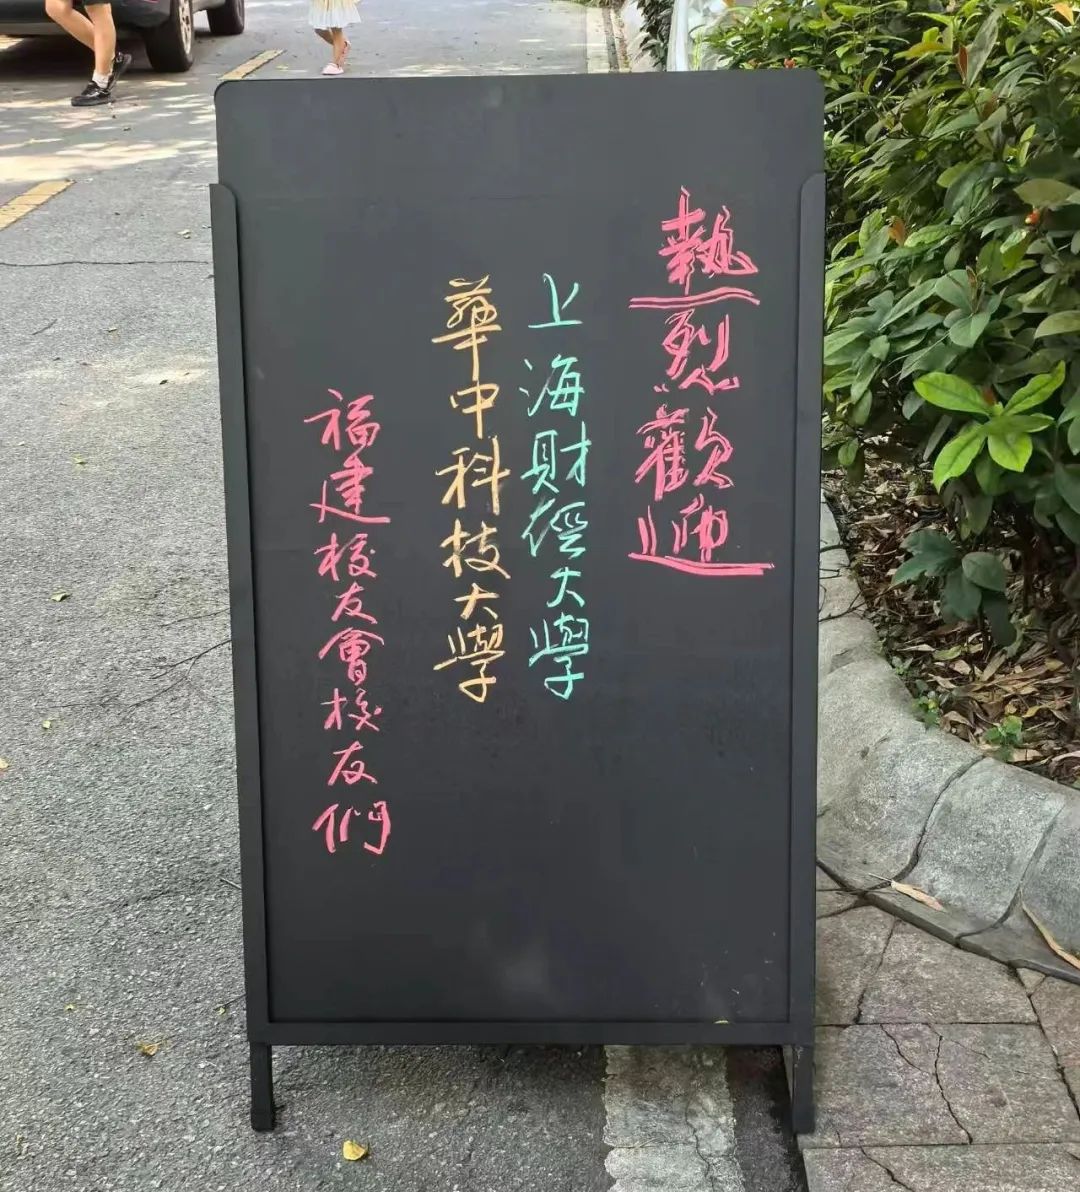 熱烈歡迎
上海財經大學
華中科技大學
福建校友會校友們